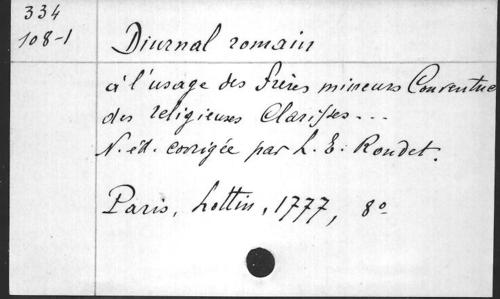 334
108-1
Diurnal romain
à l'usage des Frères mineurs Conventue
des religieuses Clarisses...
N. éd. corrigée par L. E. Rondet.
Paris, Lottin, 1777, 8º